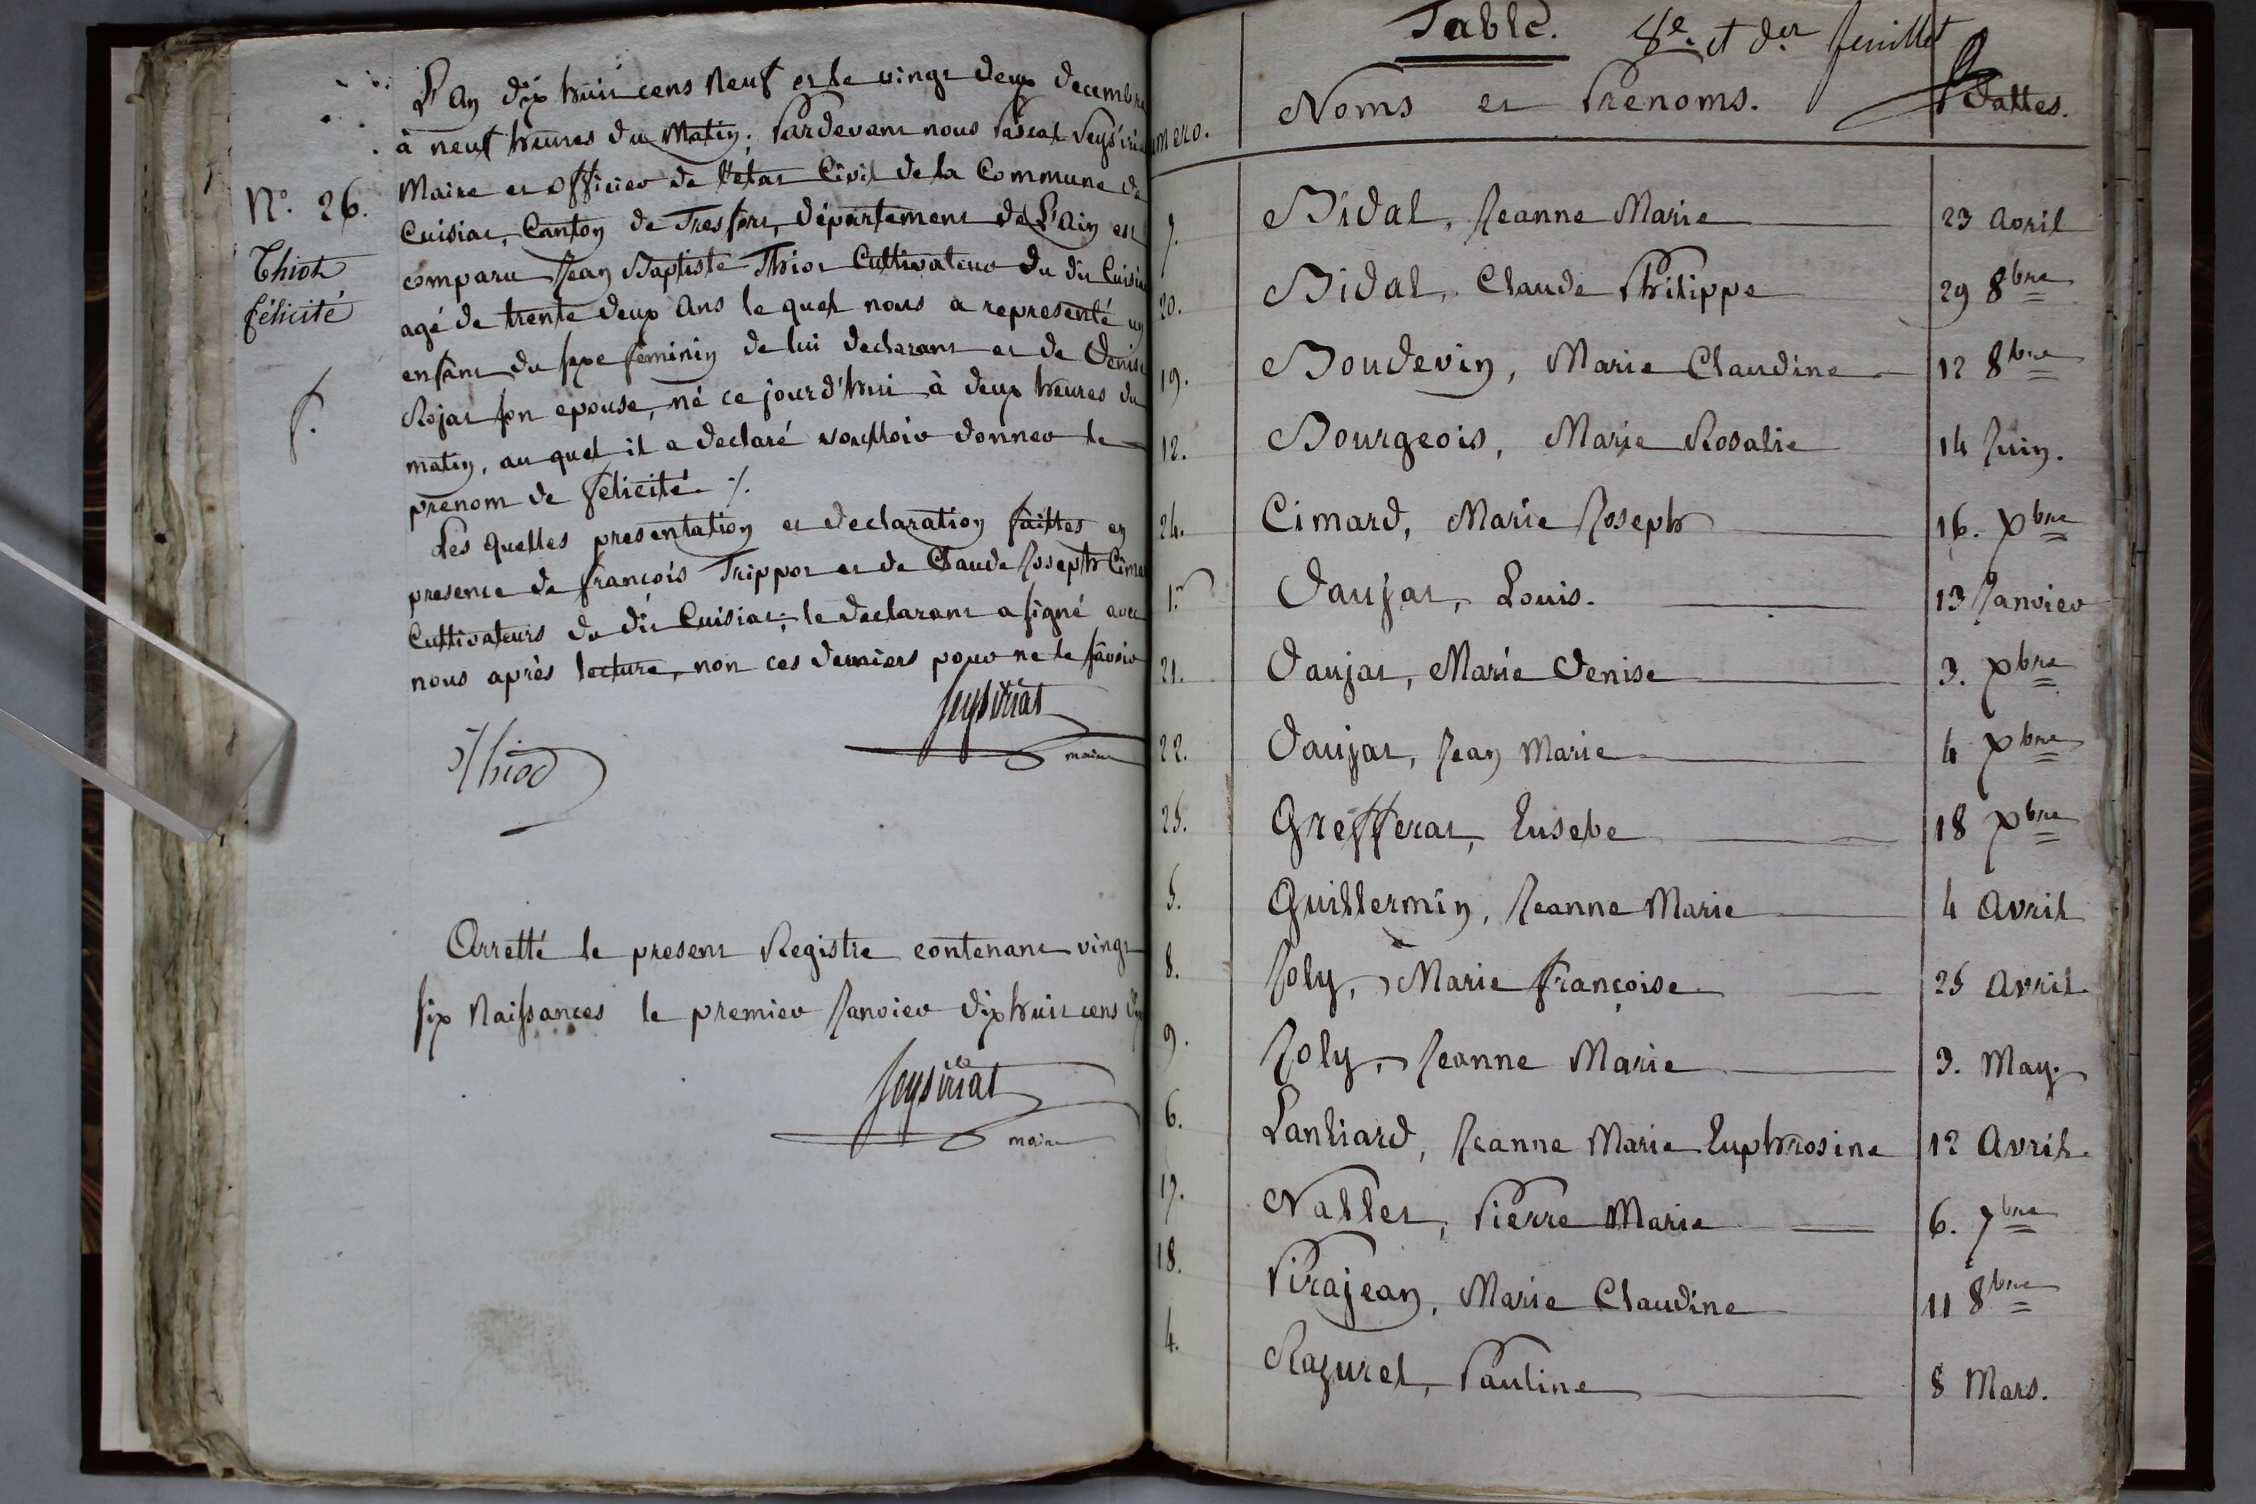 L'An dix huit cens Neuf et le vingt deux decembre
à neuf heures du Matin, Pardevant nous Pascal Seysiriat
N°. 26.
Maire et officier de l'etat Civil de la Commune de
Cuisiat, Canton de Tresfort, département de L'Ain est
Thiot
félicité
comparu Jean Baptiste Thiot Cultivateur du dit Cuisiat
agé de trente deux Ans le quel nous a representé un
enfant du sexe féminin de lui declarant et de Denise
Rojat son epouse, né ce jourd'hui à deux heures du
matin, au quel il a declaré voulloir donner le
prenom de félicité ./.
Les quelles presentation et declaration faittes en
presence de françois Trippoz et de Claude Joseph
Cultivateurs du dit Cuisiat; le declarant a signé avec
nous après lecture, non ces derniers pour ne le sâvoir
Seysiriat
maire
Thiod
Arretté le present Registre contenant vingt
six Naissances le premier Janvier dix huit cens dix
Seysiriat
maire
Table. 8e. et der feuillet
mero. Noms et Prenoms. dattes.
7. Bidal, Jeanne Marie 23 avril
20. Bidal, Claude Philippe 29 8bre
19. Boudevin, Marie Claudine 12 8bre
12. Bourgeois, Marie Rosalie 14 Juin.
24. Cimard, Marie Joseph 16. Xbre
1. Daujat, Louis. 13 Janvier
21. Daujat, Marie Denise 3. Xbre
22. Daujat, Jean Marie 4 Xbre
25. Grefferat, Eusebe 18 Xbre
5. Guillermin, Jeanne Marie 4 Avril
8. Joly, Marie françoise 25 Avril.
9. Joly, Jeanne Marie 3. May.
6. Lanliard, Jeanne Marie Euphrosine 12 Avril.
17. Nallet, Pierre Marie 6. 7bre
18. Pirajean, Marie Claudine 11 8bre
4. Razurel, Pauline 8 Mars.